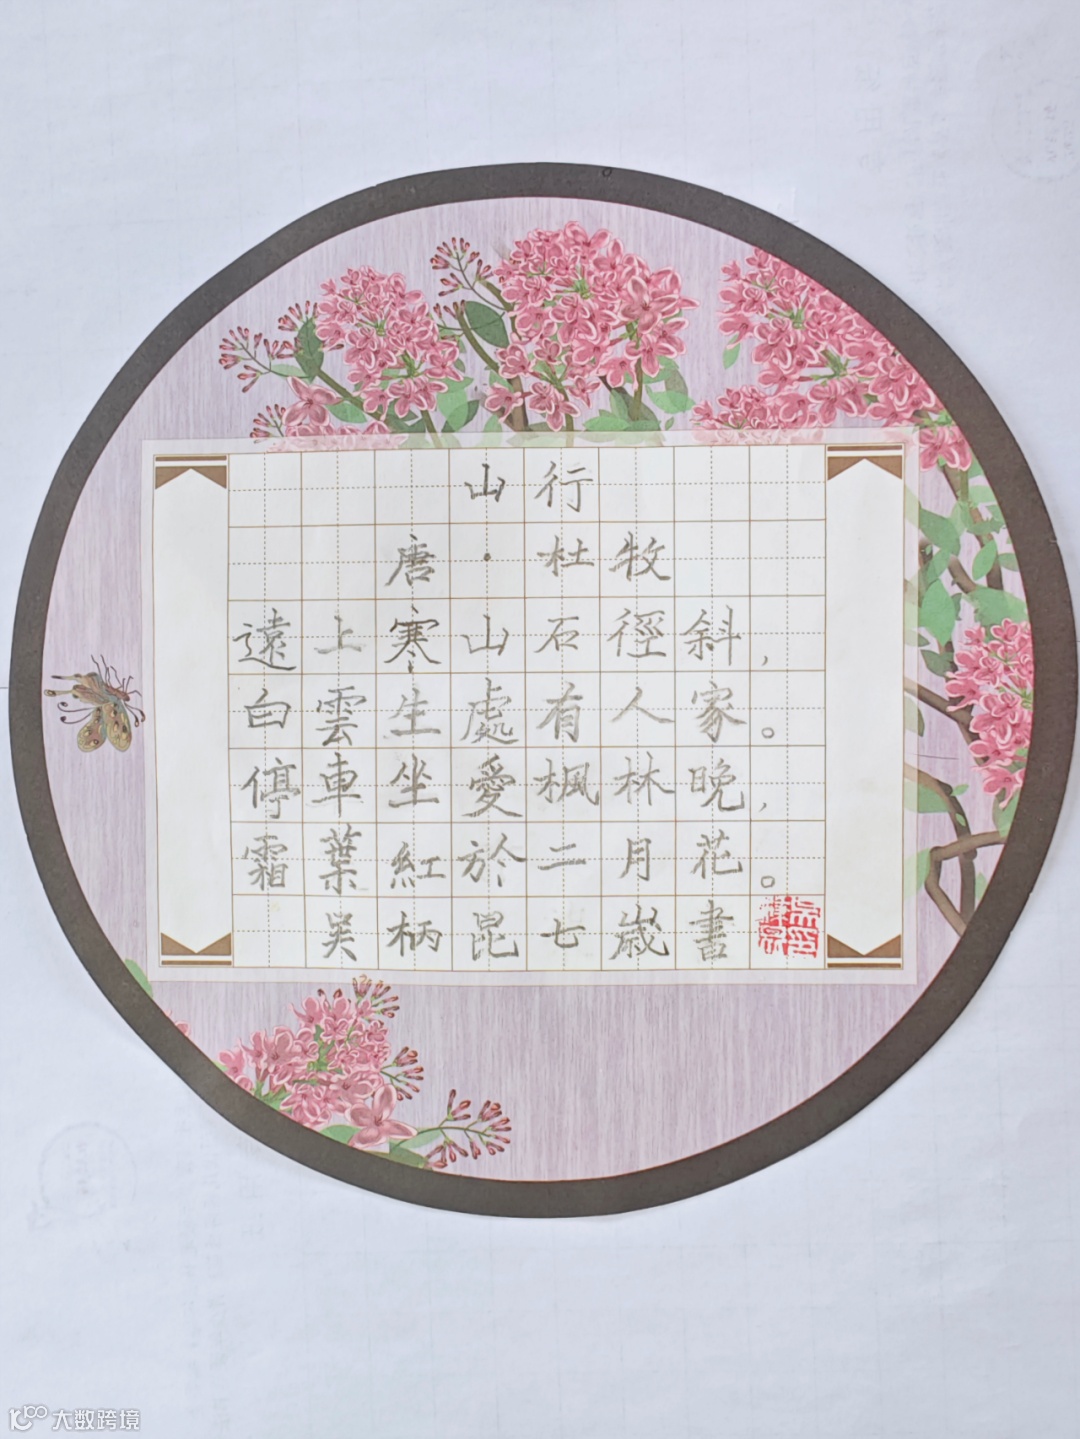 山行
唐·杜牧
遠上寒山石徑斜，
白雲生處有人家。
停車坐愛楓林晚，
霜葉紅於二月花。
吴柄昆七歲書
大数跨境